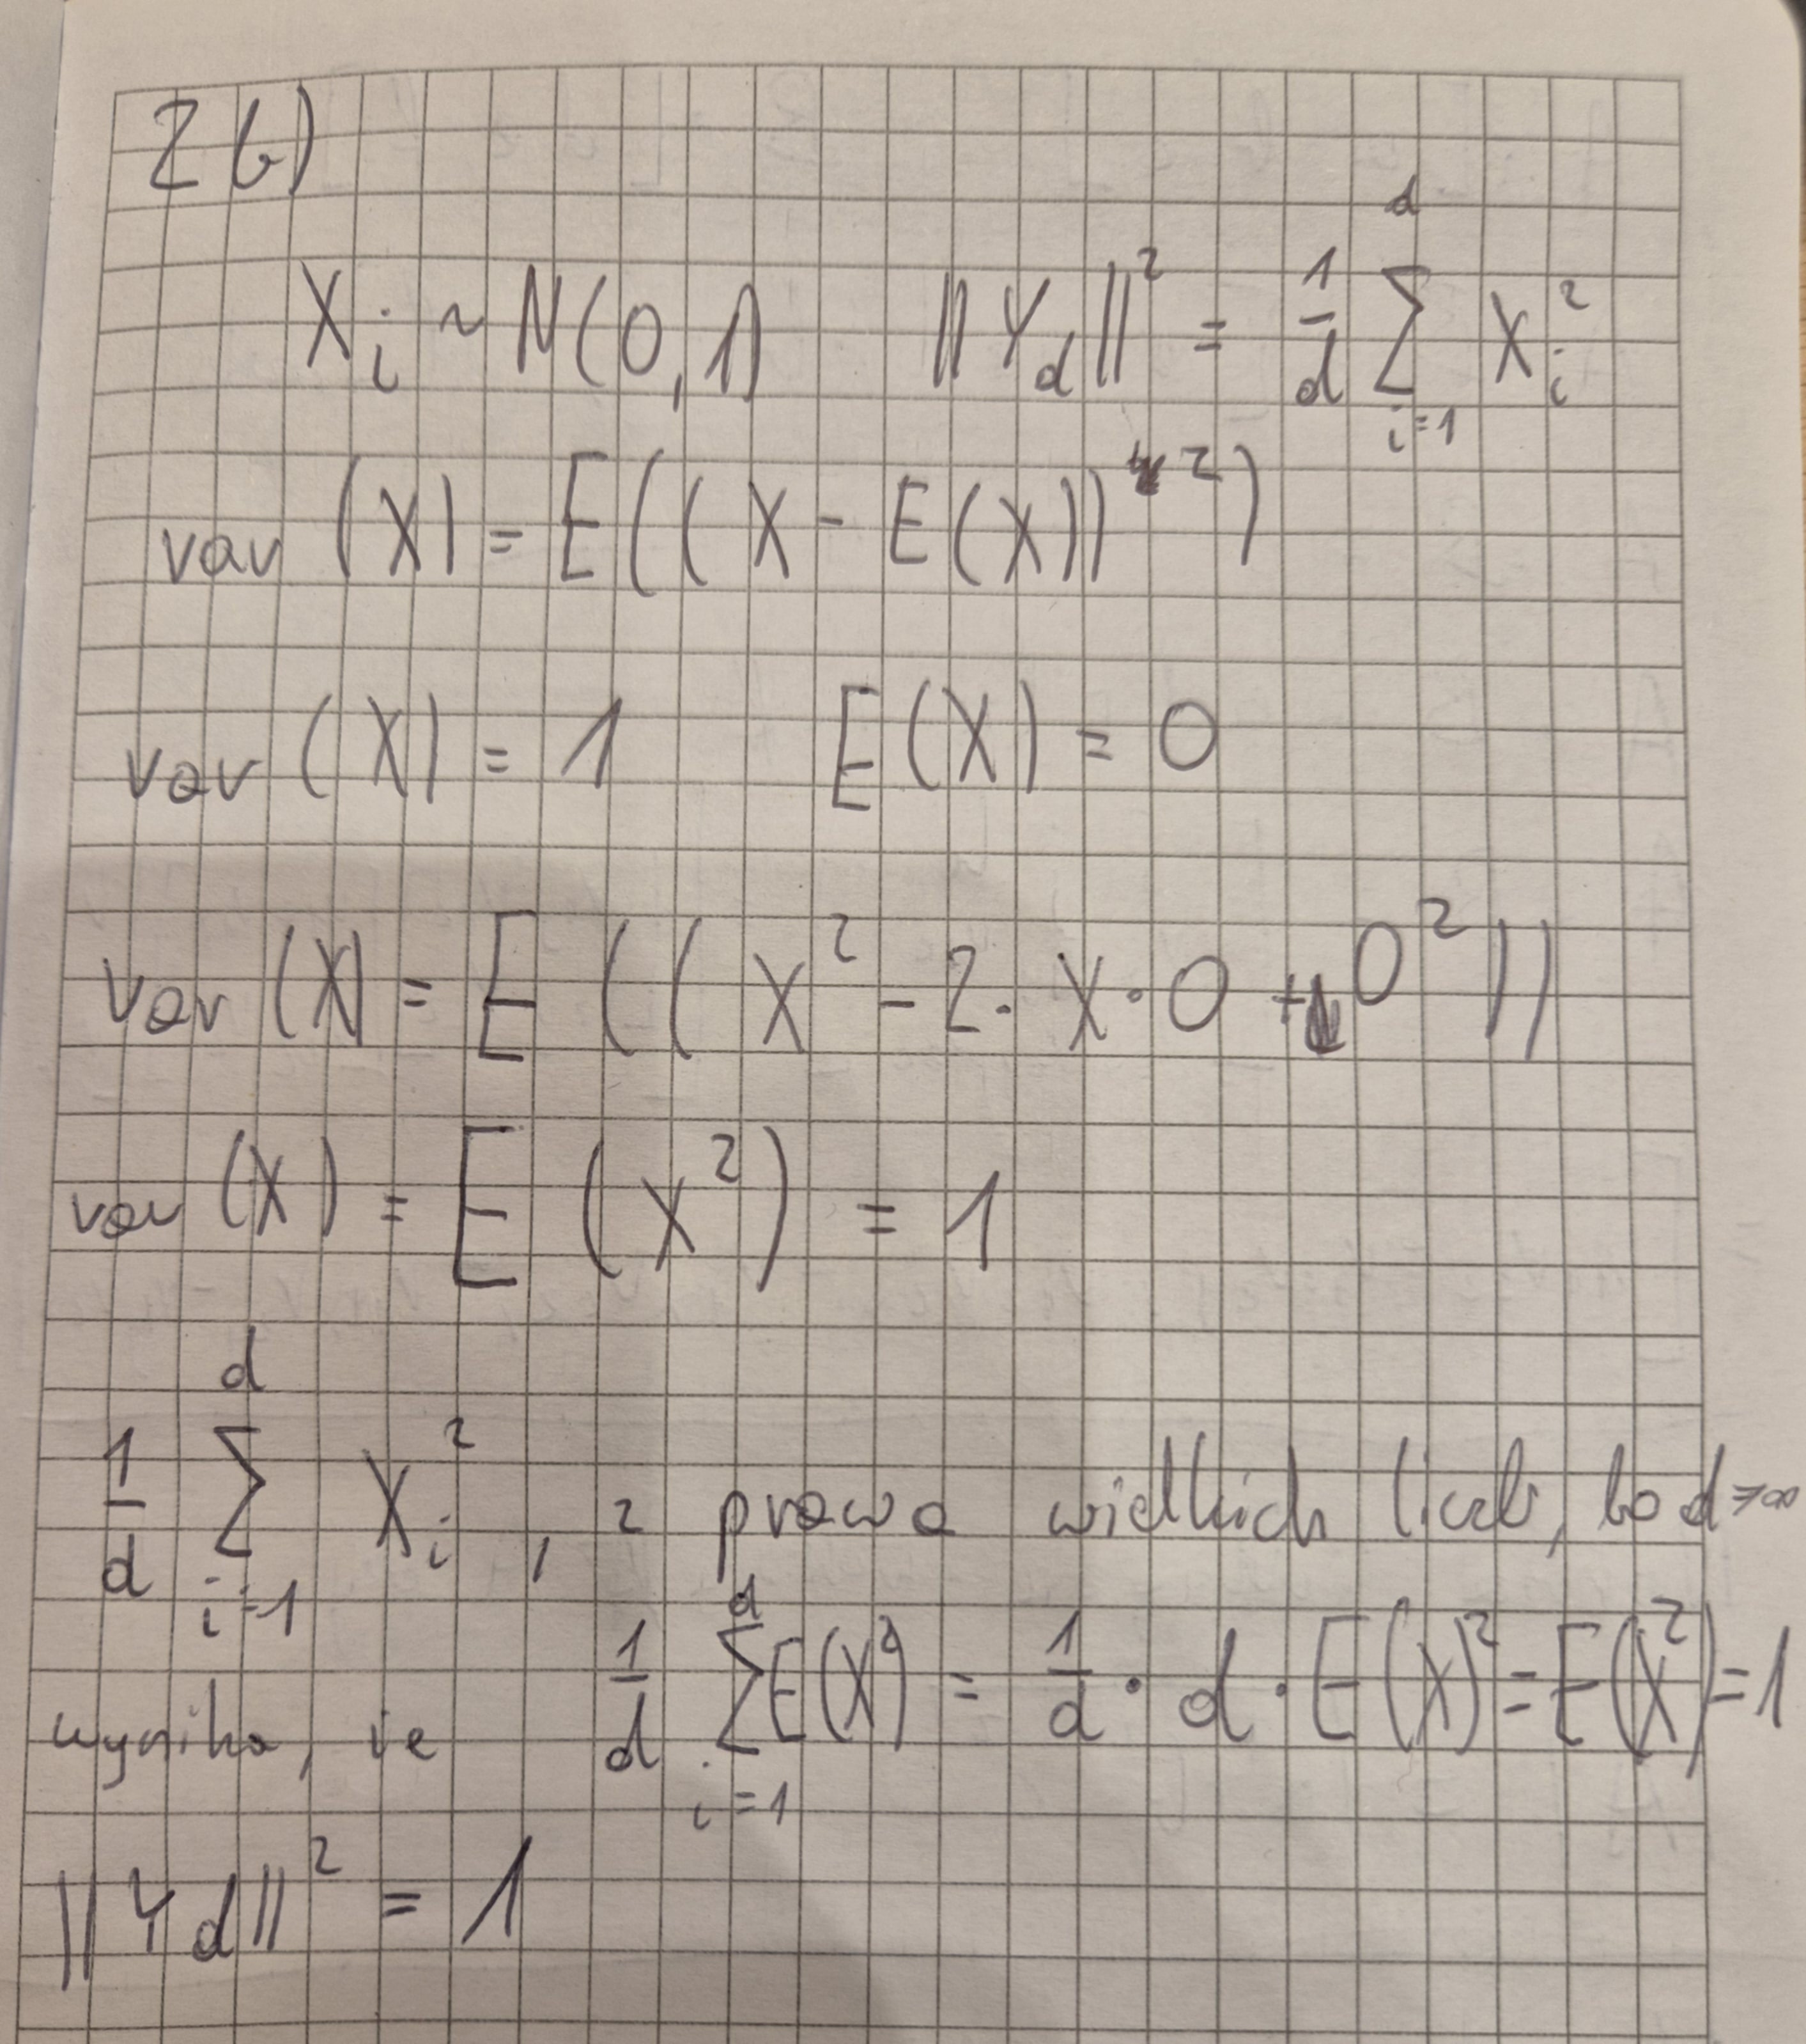 2b)
X_i ~ N(0,1) ||Y_d||² = 1/d ∑_{i=1}^{d} X_i²
var (X) = E((X - E(X))²)
var (X) = 1 E(X) = 0
var (X) = E((X² - 2·X·0 + 0²))
var (X) = E(X²) = 1
1/d ∑_{i=1}^{d} X_i², z prawa wielkich liczb, bo d→∞
wynika, że 1/d ∑_{i=1}^{d} E(X²) = 1/d · d · E(X)² = E(X²) = 1
||Y_d||² = 1